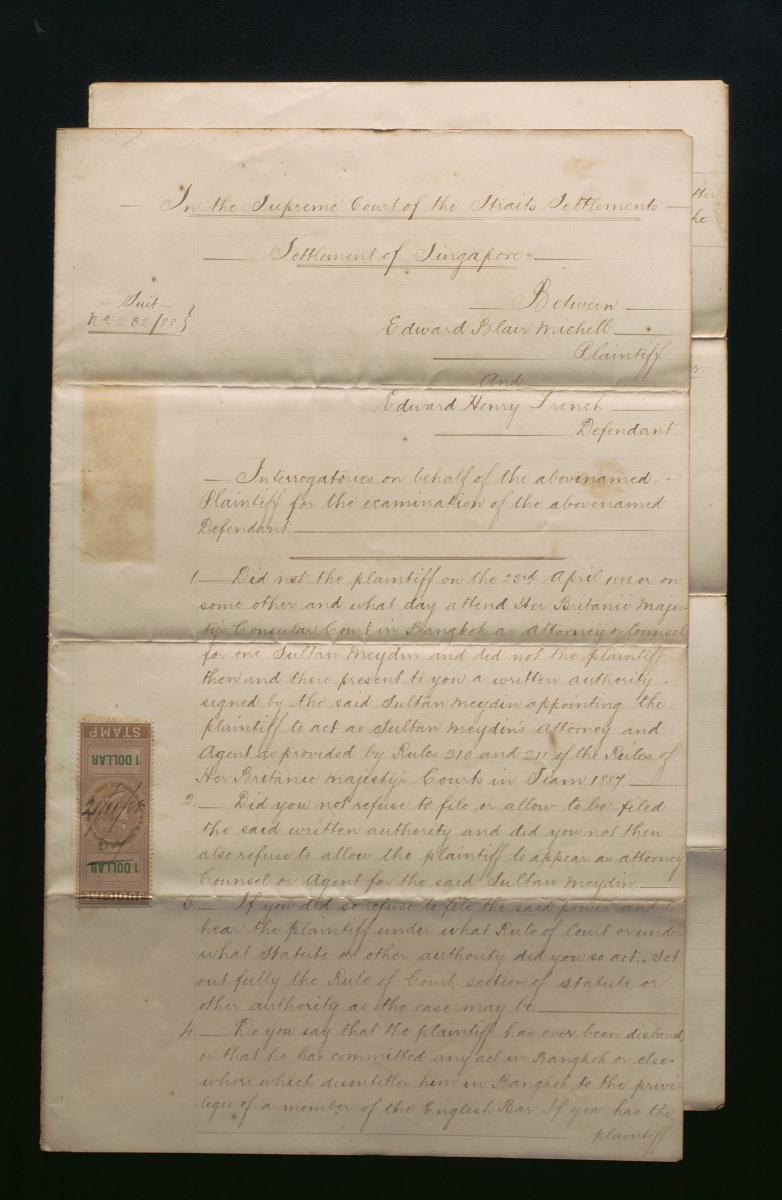 In the Supreme Court of the Straits Settlements.
Settlement of Singapore.
Suit
No. 232/88.}
Between
Edward Blair Michell
Plaintiff
And
Edward Henry French
Defendant.
Interrogatories on behalf of the abovenamed
Plaintiff for the examination of the abovenamed
Defendant.
1. Did not the plaintiff on the 23rd April 1888 or on
some other and what day attend Her Britanic Majes-
ty's Consular Court in Bangkok as attorney or Counsel
for one Sultan Meydin and did not the plaintiff
then and there present to you a written authority
signed by the said Sultan Meydin appointing the
plaintiff to act as Sultan Meydin's Attorney and
Agent as provided by Rules 210 and 211 of the Rules of
Her Britanic Majesty's Courts in Siam 1887
2. Did you not refuse to file or allow to be filed
the said written authority and did you not then
also refuse to allow the plaintiff to appear as attorney
Counsel or Agent for the said Sultan Meydin.
3. If you did so refuse to file the said power and to
hear the plaintiff under what Rule of Court or under
what Statute or other authority did you so act. Set
out fully the Rule of Court, section of Statute or
other authority as the case may be.
4. Do you say that the plaintiff has ever been disbarred
or that he has committed any act in Bangkok or else-
where which disentitles him in Bangkok to the privi-
leges of a member of the English Bar If yea has the
plaintiff
STAMP
1 DOLLAR
1 DOLLAR
JUDICIAL
he